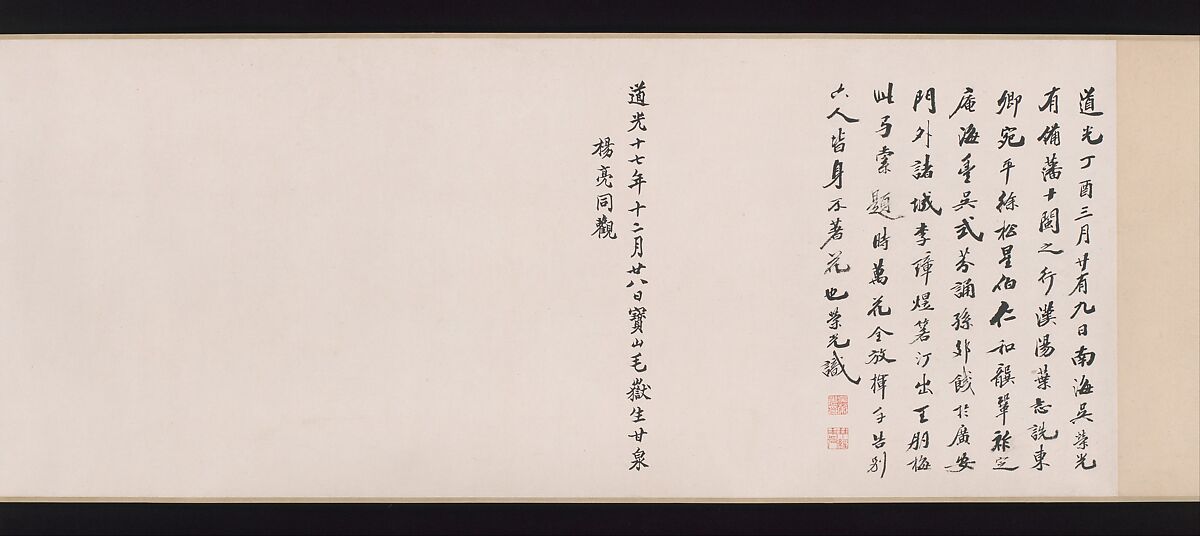 道光丁酉三月廿有九日南海吳榮光
有備藩十閩之行漢陽葉志詵東
卿宛平徐松星伯仁和龔鞏祚定
庵海豐吳式芬誦孫郊餞於廣安
門外諸城李璋煜箬汀出王朋梅
此馬索題時萬花全放揮手告別
六人皆身不著花也榮光識
道光十七年十二月廿八日寶山毛嶽生甘泉
楊亮同觀